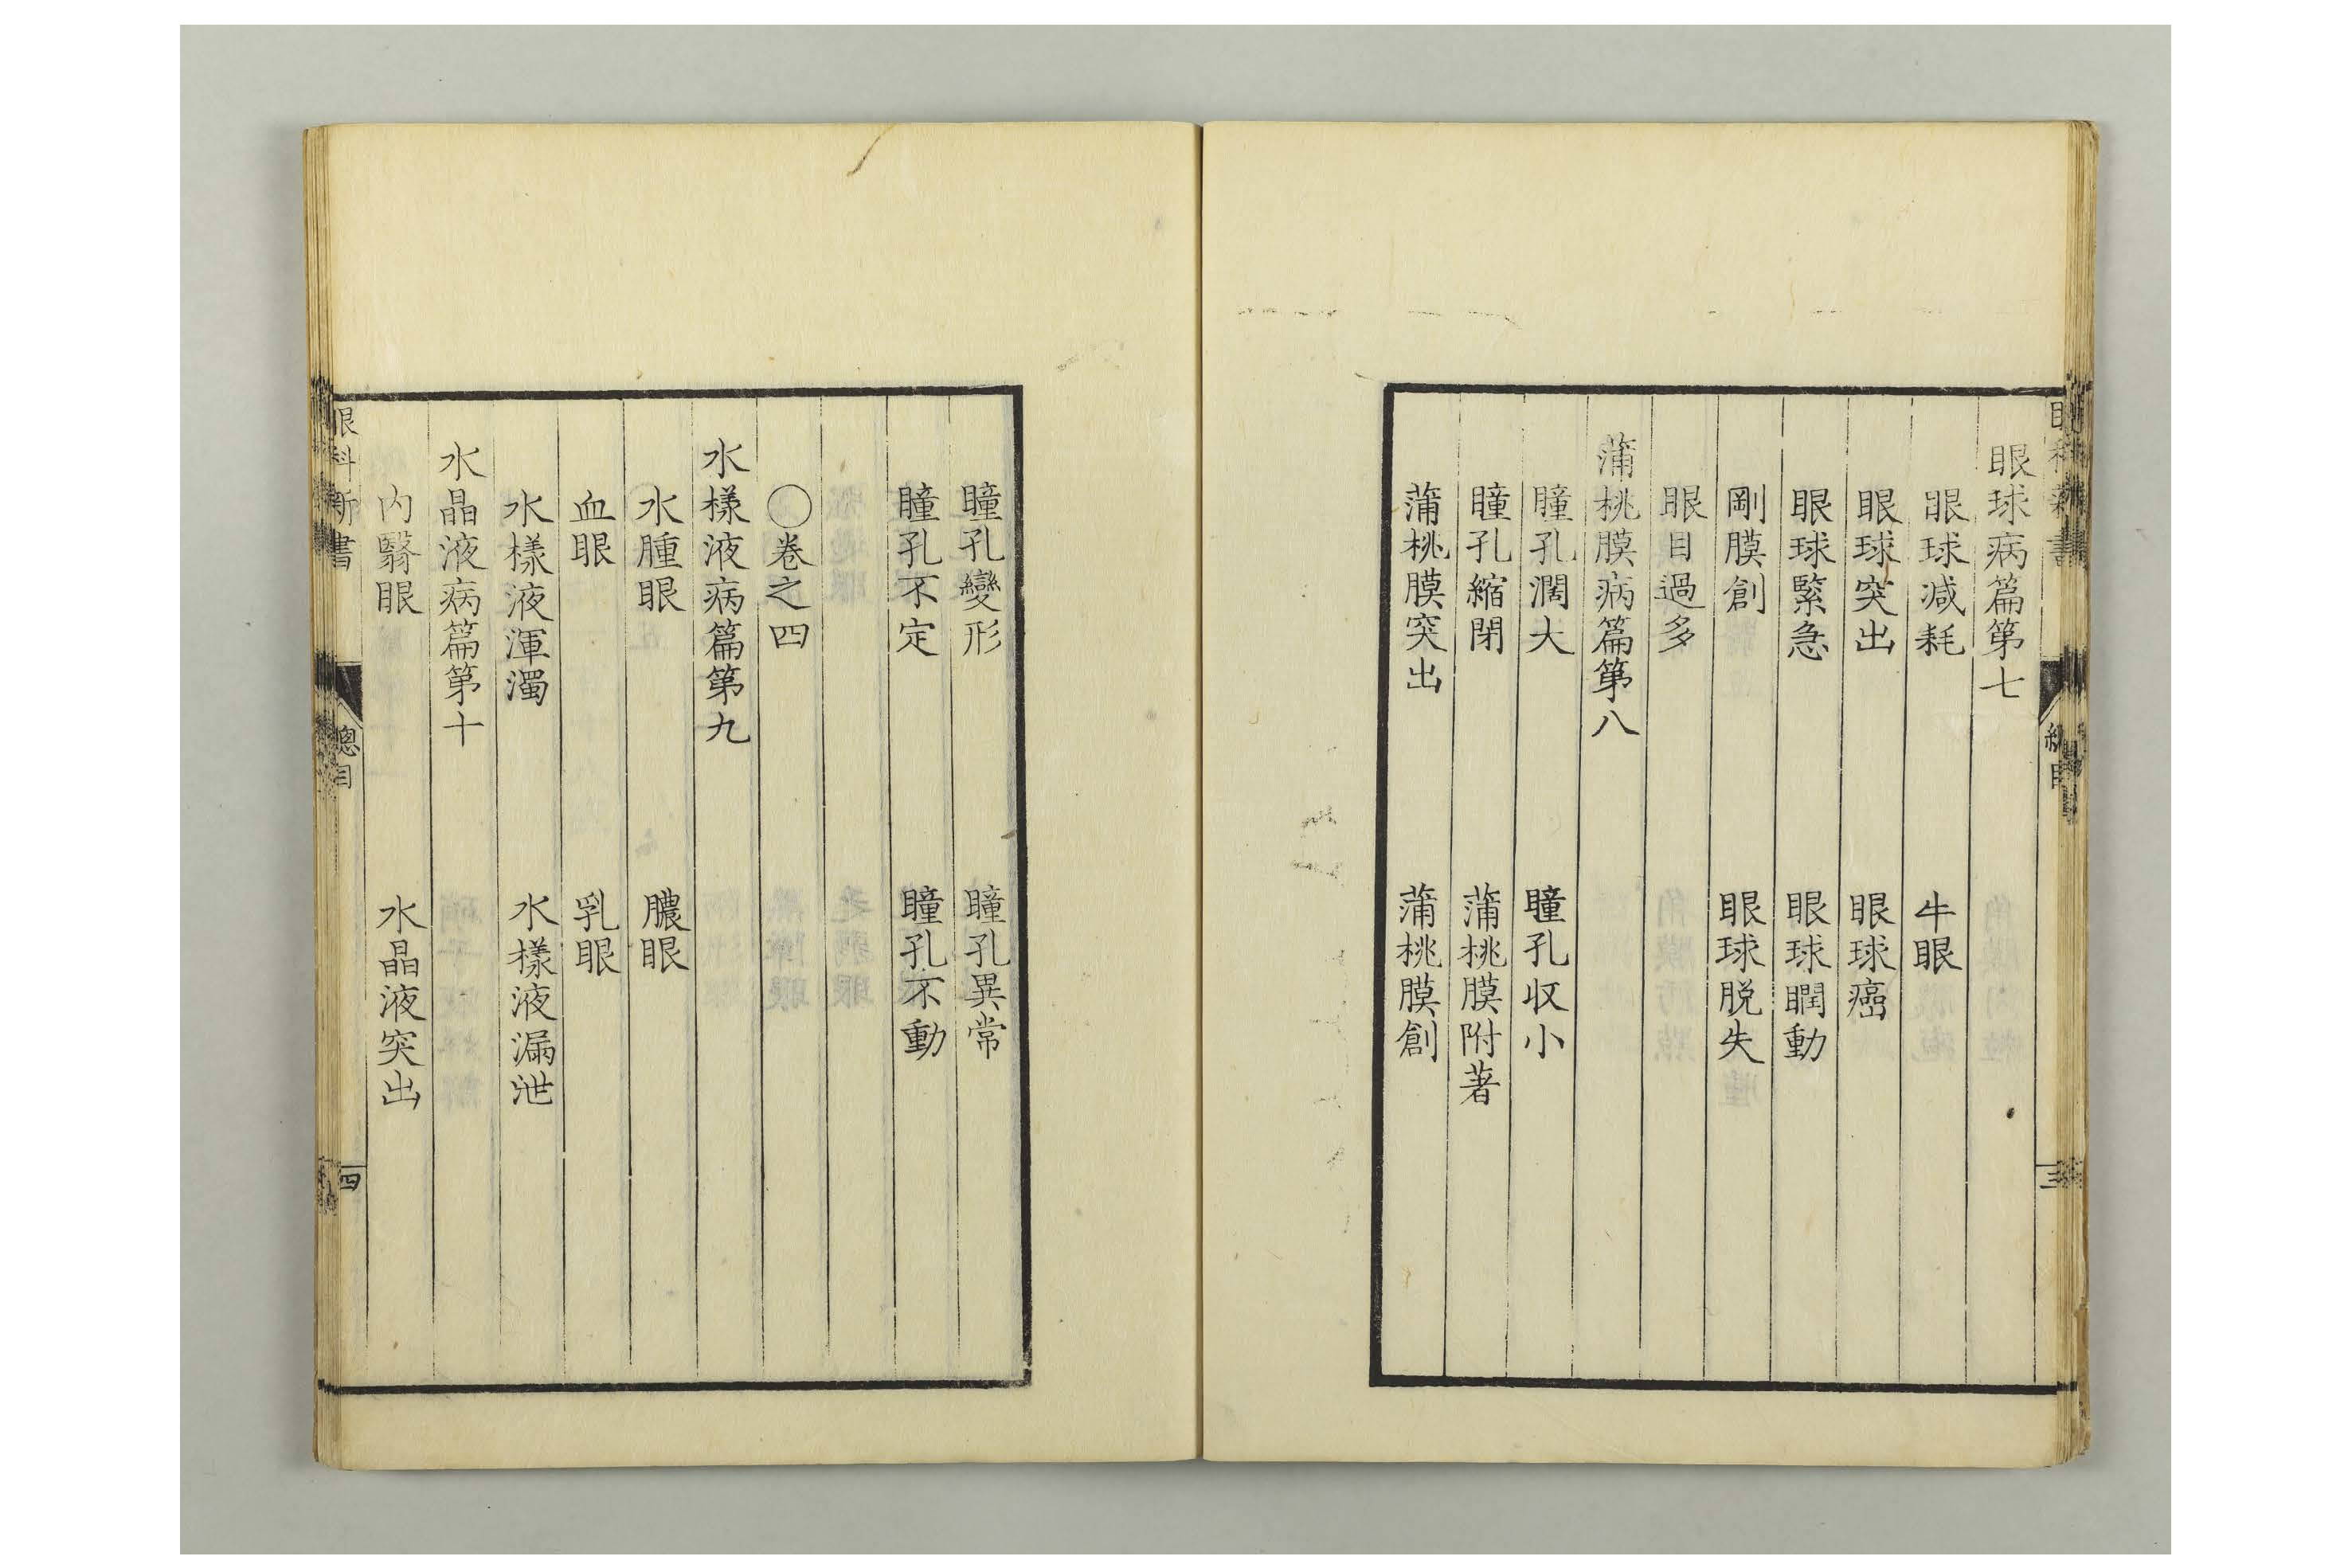 眼球病篇第七
眼球減耗　牛眼
眼球突出　眼球癌
眼球緊急　眼球瞤動
剛膜創　眼球脱失
眼目過多
蒲桃膜病篇第八
瞳孔濶大　瞳孔収小
瞳孔縮閉　蒲桃膜附著
蒲桃膜突出　蒲桃膜創
瞳孔變形　瞳孔異常
瞳孔不定　瞳孔不動
〇卷之四
水樣液病篇第九
水腫眼　膿眼
血眼　乳眼
水樣液渾濁　水樣液漏泄
水晶液病篇第十
内翳眼　水晶液突出
眼科新書　總目　四